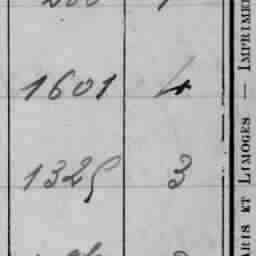 1601 4
1325 3
ARIS ET LIMOGES — IMPRIME